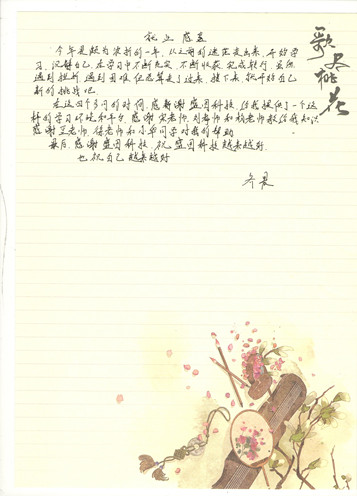 就业感言
今年是颇为农新的一年,从之前的迷茫走出来,开始学
习,沉静自己,在学习中不断充实,不断收获,完成就行,虽然
遇到挫折,遇到困难,但还算走了过来,接下来,就开始自己
新的挑战吧。
在这四个多月的时间,感谢盛图科技,给我提供了一个这
样的学习环境和平台,感谢宋老师,刘老师和杨老师教给我知识
感谢王老师,徐老师和小单同学对我的帮助
最后,感谢盛图科技,祝盛图科技越来越好,
也祝自己越来越好
歌尽桃花